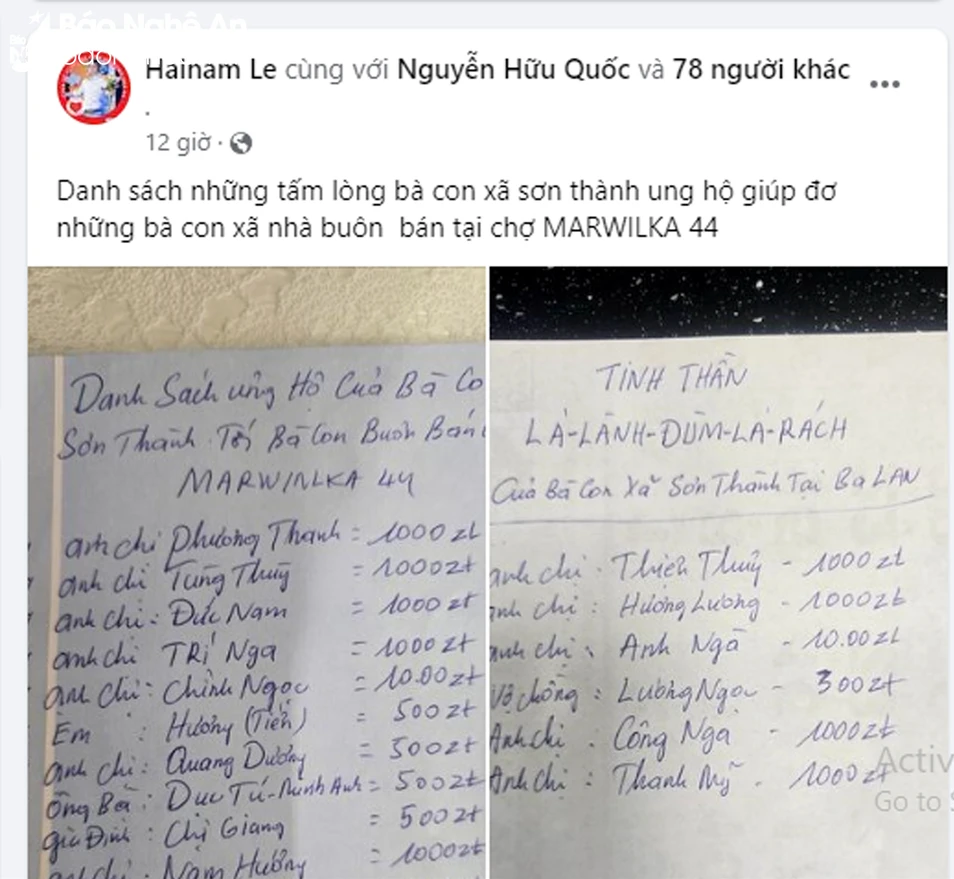 Báo Nghệ An
Hainam Le cùng với Nguyễn Hữu Quốc và 78 người khác
.
12 giờ ·
Danh sách những tấm lòng bà con xã sơn thành ung hộ giúp đơ
những bà con xã nhà buôn bán tại chợ MARWILKA 44
Danh Sách ủng Hộ Của Bà Co
Sơn Thành Tới Bà Con Buôn Bán
MARWINLKA 44
anh chi Phương Thanh = 1000 zt
anh chi Tùng Thuỷ = 1000zt
anh chi: Đức Nam = 1000 zt
anh chi TRÍ Nga = 1000 zt
anh chi: Chinh Ngọc = 10.00zt
Em : Hương (Tiến) = 500 zt
anh chi: Quang Dương = 500zt
Ông Bà: Duc Tú-Minh Anh = 500zt
gia Đình: Chị Giang = 500 zt
chi: Nam Hương = 1000zt
TINH THẦN
LÁ-LÀNH-ĐÙM-LÁ-RÁCH
Của Bà Con Xã Sơn Thành Tại Ba LAN
anh chi. Thiên Thuỷ - 1000 zt
anh chị: Hương Lương - 1000zt
anh chi: Anh Ngà - 10.00zt
Vợ chồng: Lương Ngọc - 300zt
Anh chi. Công Nga - 1000zt
Anh chi: Thanh Mỹ. 1000 zt
Activ
Go to S